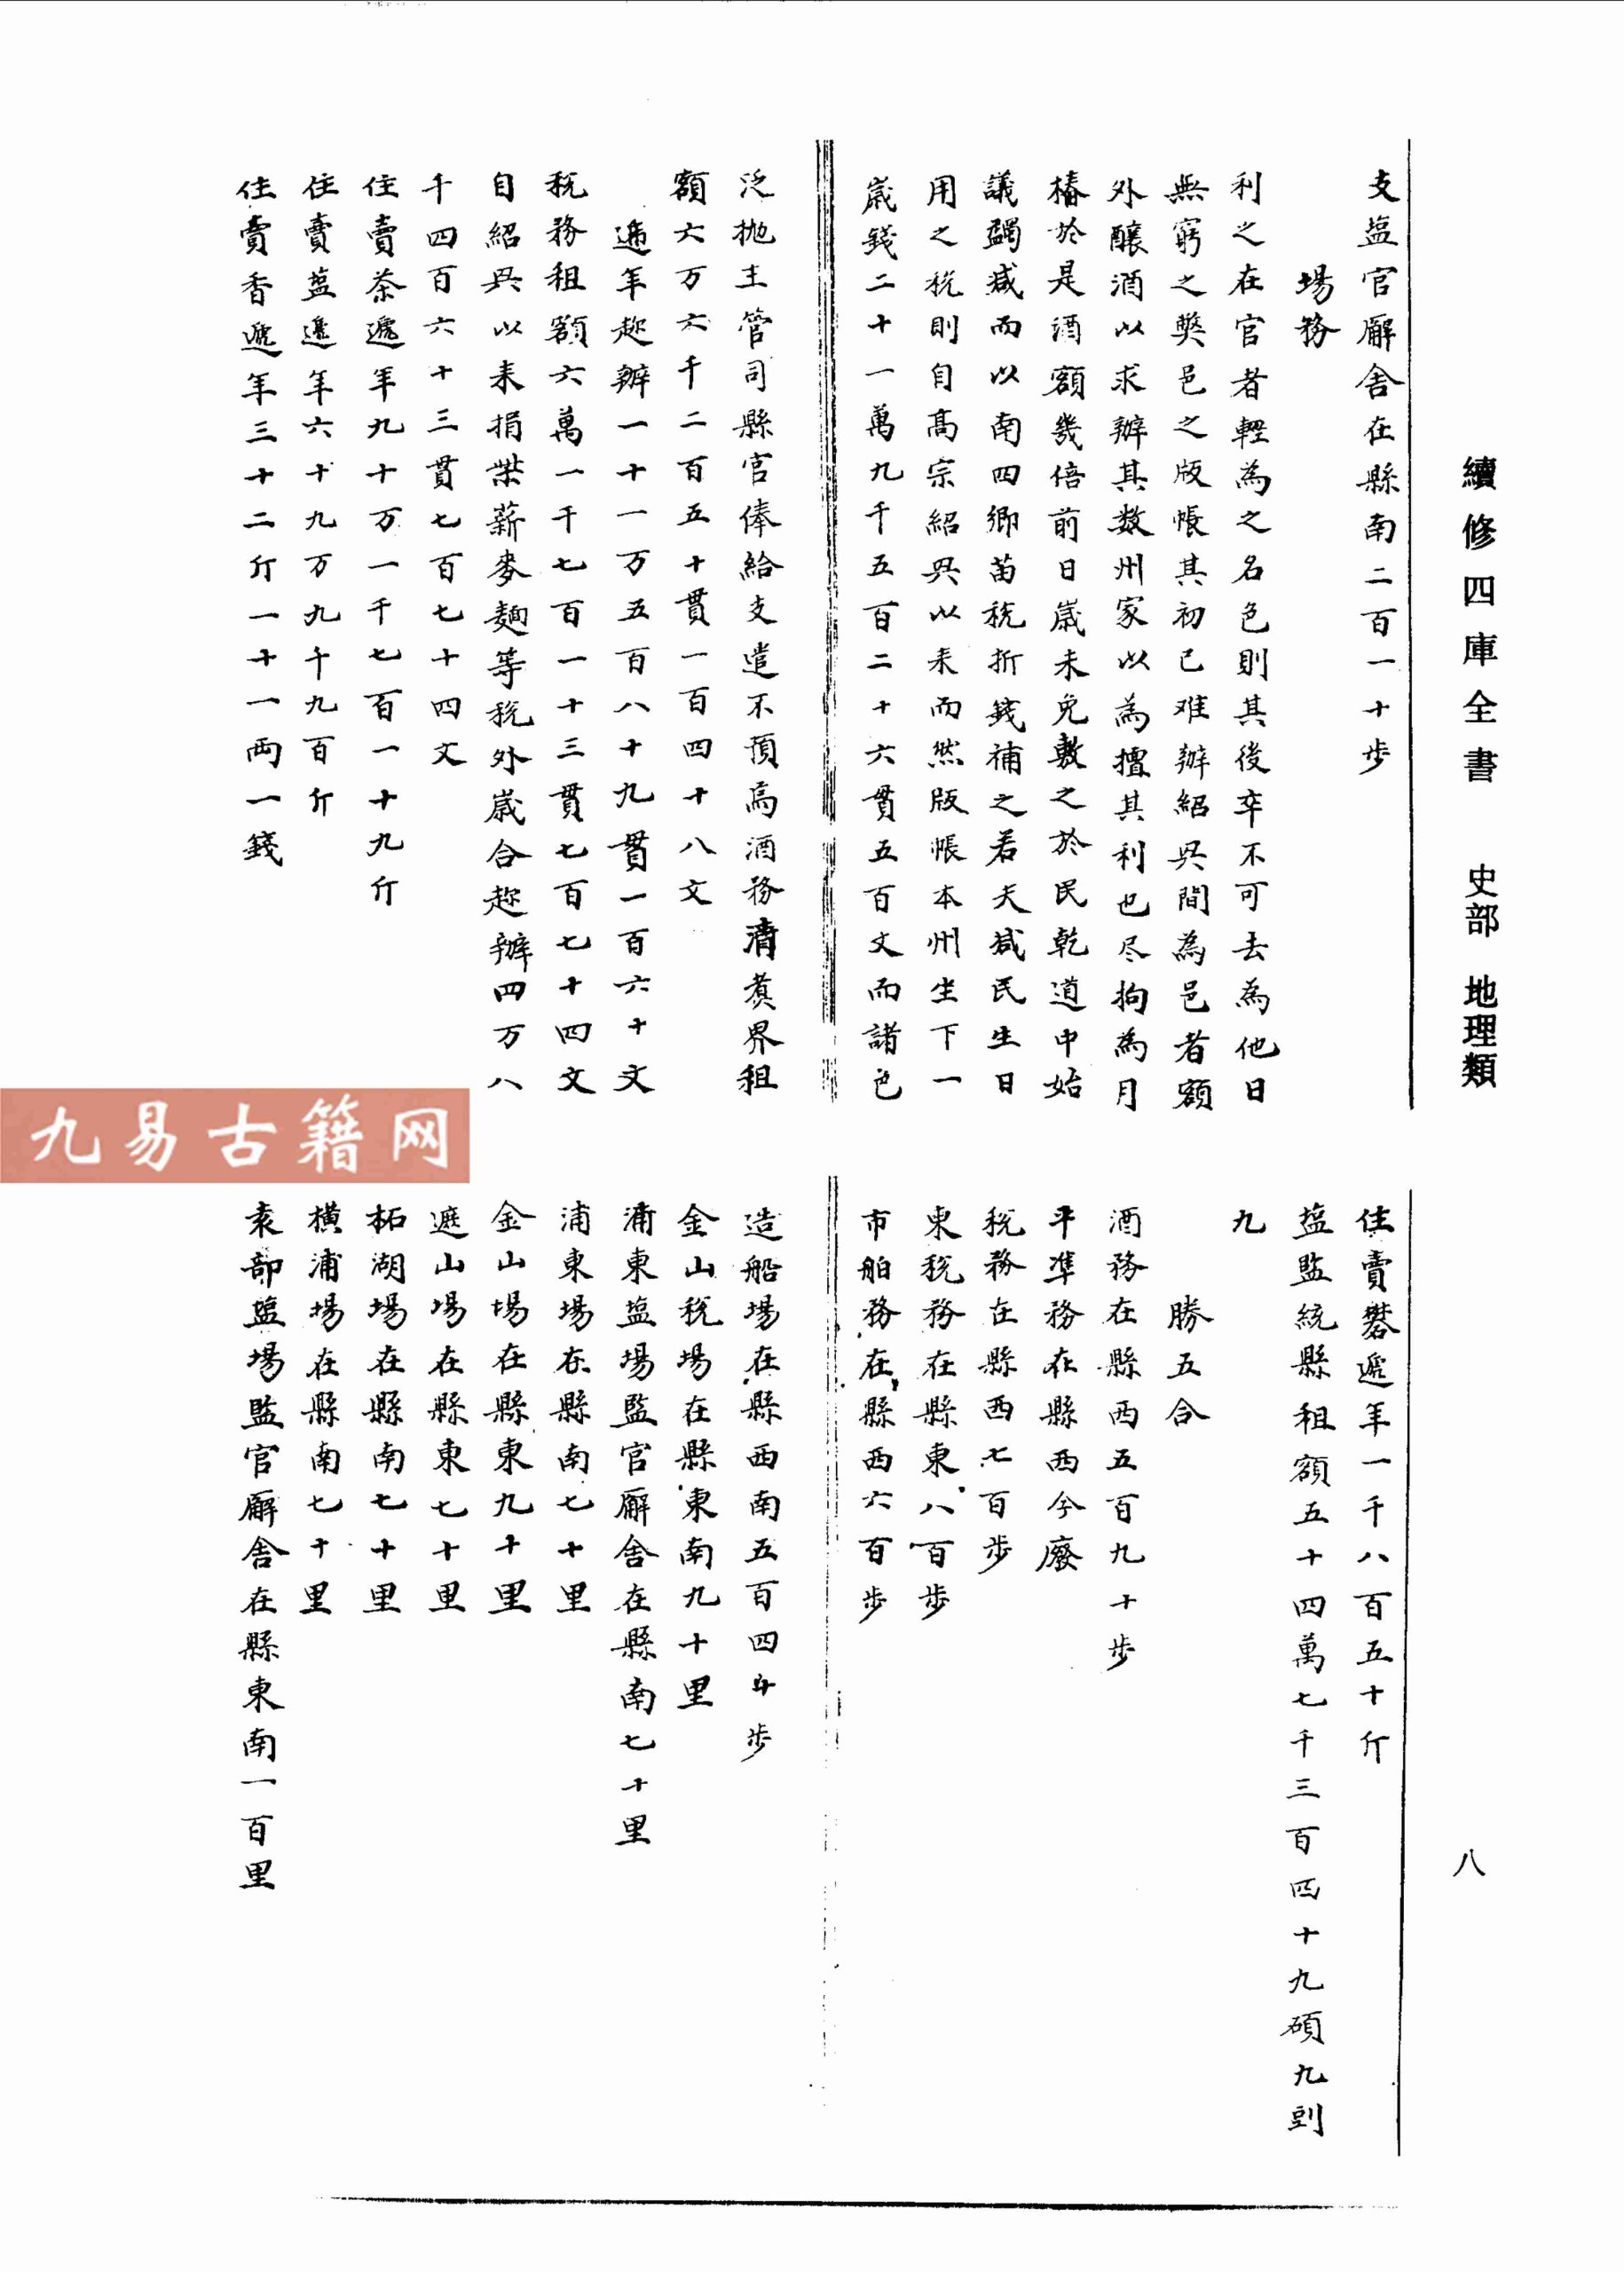 續修四庫全書 史部 地理類
八
支盐官廨舍在縣南二百一十步
場務
利之在官者輕為之名色則其後卒不可去為他日
無窮之弊邑之版帳其初已难辦紹興間為邑者額
外釀酒以求辦其数州家以為擅其利也尽拘為月
樁於是酒額幾倍前日嵗未免敷之於民乾道中始
議蠲减而以南四鄉苗税折錢補之若夫减民生日
用之税則自髙宗紹興以来而然版帳本州坐下一
嵗錢二十一萬九千五百二十六貫五百文而諸色
泛抛主管司縣官俸給支遣不預焉酒務清煑界租
額六万六千二百五十貫一百四十八文
遞年趂辦一十一万五百八十九貫一百六十文
税務租額六萬一千七百一十三貫七百七十四文
自紹興以来捐柴薪麥麺等税外嵗合趂辦四万八
千四百六十三貫七百七十四文
住賣茶遞年九十万一千七百一十九斤
住賣盐遞年六十九万九千九百斤
住賣香遞年三十二斤一十一两一錢
住賣礬遞年一千八百五十斤
盐監統縣租額五十四萬七千三百四十九碩九㪷
九
勝五合
酒務在縣西五百九十步
平準務在縣西今廢
税務在縣西七百步
東税務在縣東八百步
市舶務在縣西六百步
造船場在縣西南五百四十步
金山税場在縣東南九十里
浦東盐場監官廨舍在縣南七十里
浦東場在縣南七十里
金山場在縣東九十里
遮山場在縣東七十里
柘湖場在縣南七十里
横浦場在縣南七十里
袁部盐場監官廨舍在縣東南一百里
九易古籍网